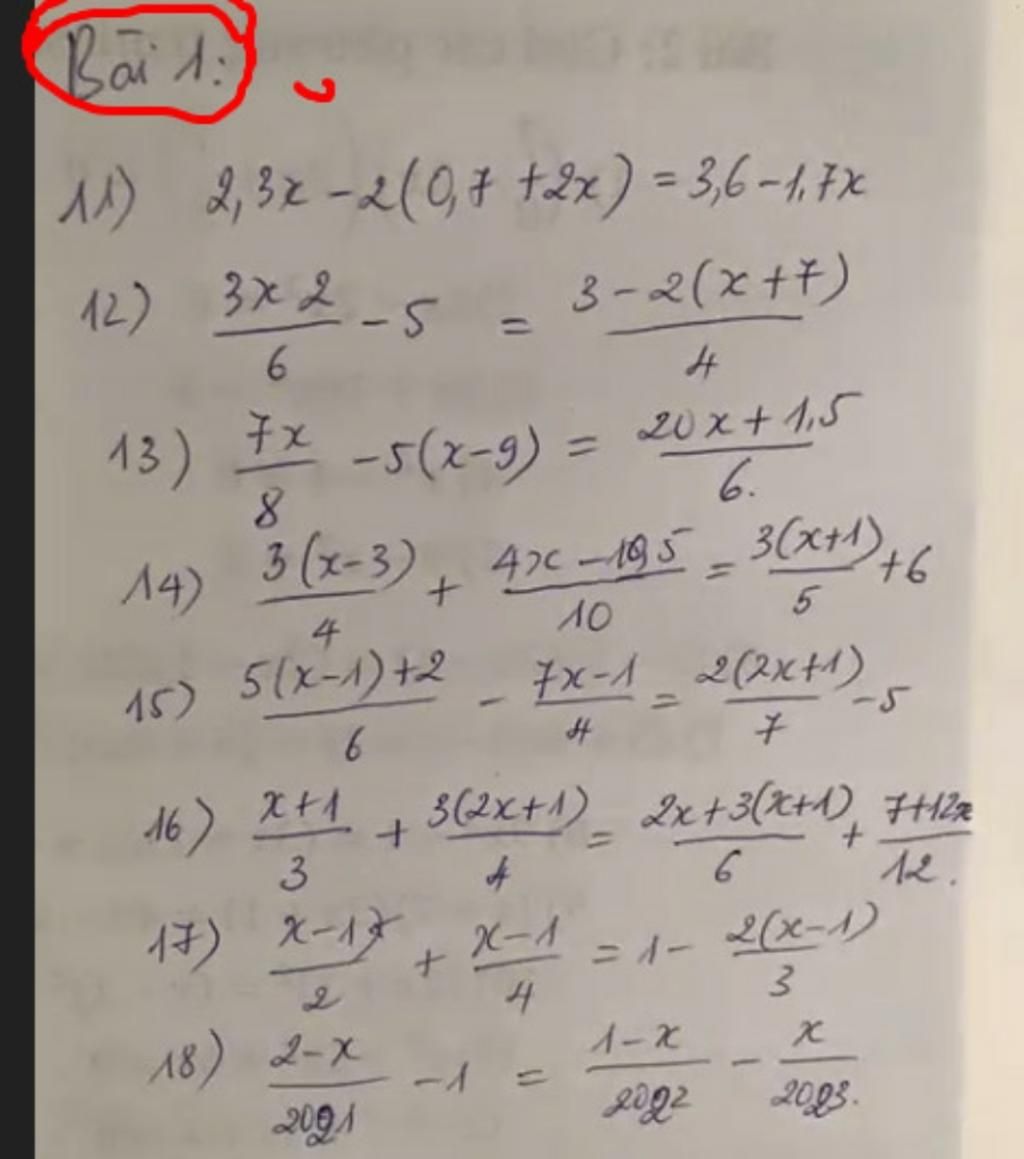 Bài 1:
11) 2,3x - 2(0,7 + 2x) = 3,6 - 1,7x
12) \frac{3x 2}{6} - 5 = \frac{3 - 2(x + 7)}{4}
13) \frac{7x}{8} - 5(x - 9) = \frac{20x + 1,5}{6}.
14) \frac{3(x - 3)}{4} + \frac{4x - 10,5}{10} = \frac{3(x + 1)}{5} + 6
15) \frac{5(x - 1) + 2}{6} - \frac{7x - 1}{4} = \frac{2(2x + 1)}{7} - 5
16) \frac{x + 1}{3} + \frac{3(2x + 1)}{4} = \frac{2x + 3(x + 1)}{6} + \frac{7 + 12x}{12}.
17) \frac{x - 1}{2} + \frac{x - 1}{4} = 1 - \frac{2(x - 1)}{3}
18) \frac{2 - x}{2021} - 1 = \frac{1 - x}{2022} - \frac{x}{2023}.